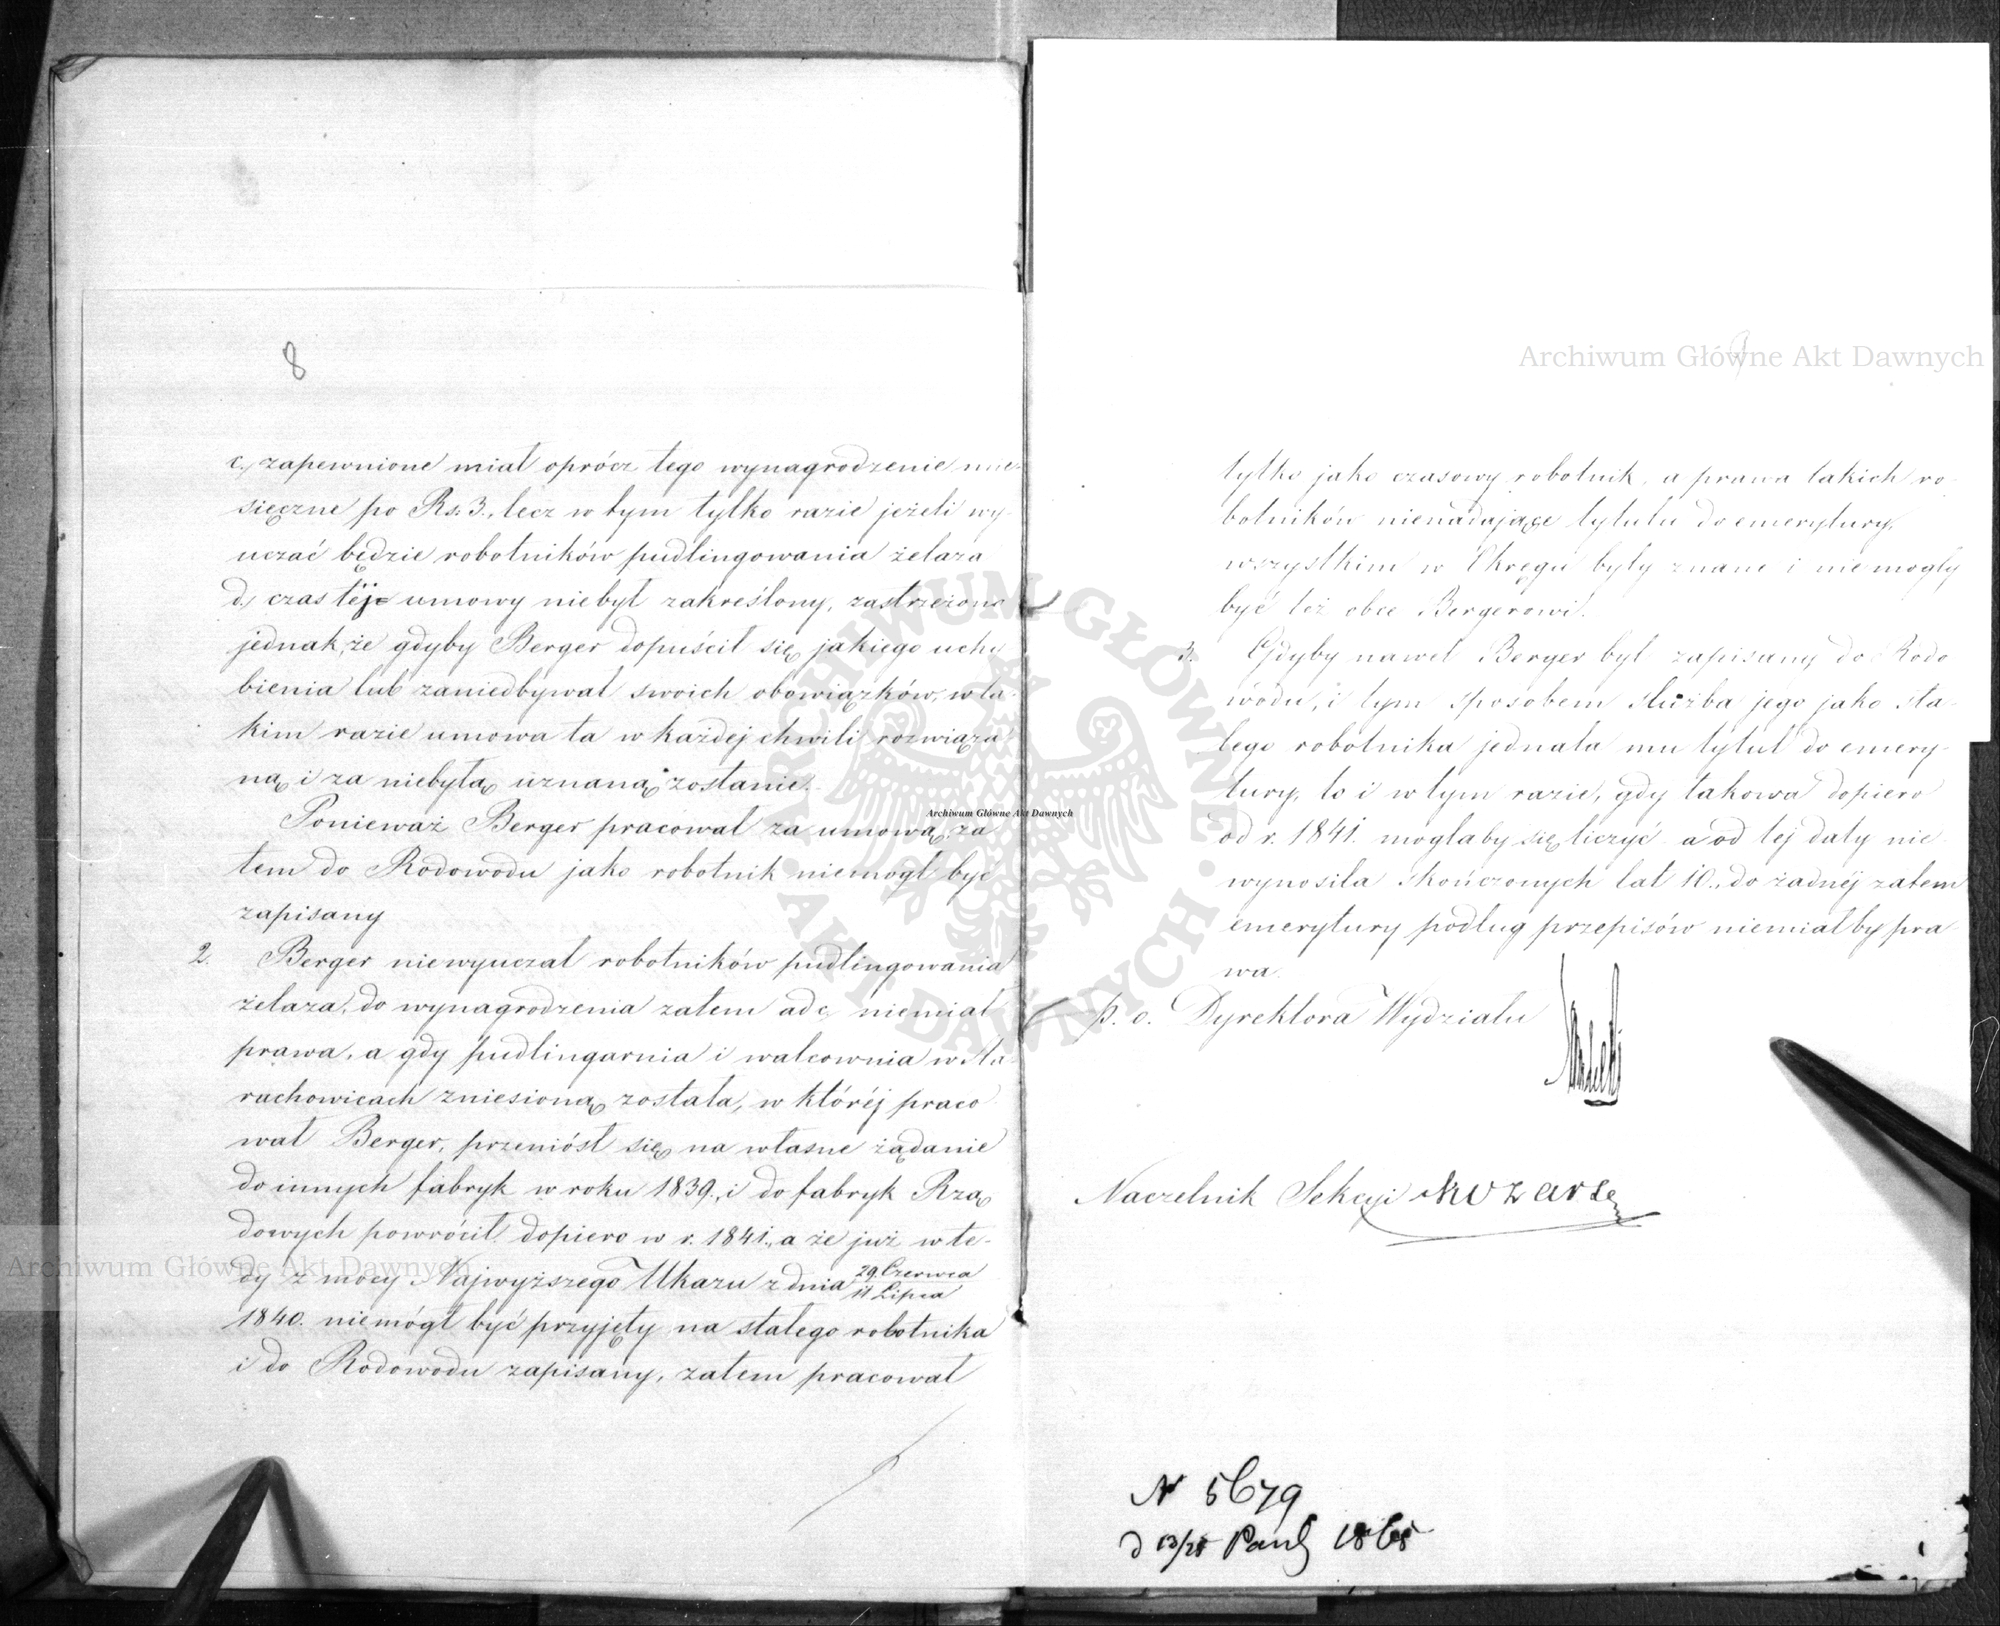 8
c., zapewnione miał oprócz tego wynagrodzenie mie-
sięczne po Rs. 3., lecz w tym tylko razie jeżeli wy-
uczać będzie robotników pudlingowania żelaza
d., czas téj umowy niebył zakreślony, zastrzeżono
jednak, że gdyby Berger dopuścił się jakiego uchy
bienia lub zaniedbywał swoich obowiązków, w ta-
kim razie umowa ta w każdej chwili rozwiąza
ną i za niebyłą uznaną zostanie.
Ponieważ Berger pracował za umową, za
tem do Rodowodu jako robotnik niemógł być
zapisany
2. Berger niewyuczał robotników pudlingowania
żelaza, do wynagrodzenia zatem ad c, niemiał
prawa, a gdy pudlingarnia i walcownia w Sta-
rachowicach zniesioną została, w któréj praco
wał Berger, przeniósł się na własne żądanie
do innych fabryk w roku 1839., i do fabryk Rzą
dowych powrócił dopiero w r. 1841., a że już wte-
dy z mocy Najwyższego Ukazu z dnia 29 Czerwca / 11 Lipca
1840. niemógł być przyjęty na stałego robotnika
i do Rodowodu zapisany, zatem pracował
tylko jako czasowy robotnik, a prawa takich ro-
botników nienadające tytułu do emerytury,
wszystkim w Okręgu były znane i niemogły
być też obce Bergerowi.
3. Gdyby nawet Berger był zapisany do Rodo
wodu, i tym sposobem służba jego jako sta-
łego robotnika jednała mu tytuł do emery-
tury, to i w tym razie, gdy takowa dopiero
od r. 1841. mogłaby się liczyć a od tej daty nie
wynosiła skończonych lat 10., do żadnéj zatem
emerytury podług przepisów niemiałby pra
wa.
p. o. Dyrektora Wydziału
Naczelnik Sekcyi
N 5679
d 13/25 Paźd 1865
Archiwum Główne Akt Dawnych
Archiwum Główne Akt Dawnych
Archiwum Główne Akt Dawnych
ARCHIWUM GŁÓWNE AKT DAWNYCH